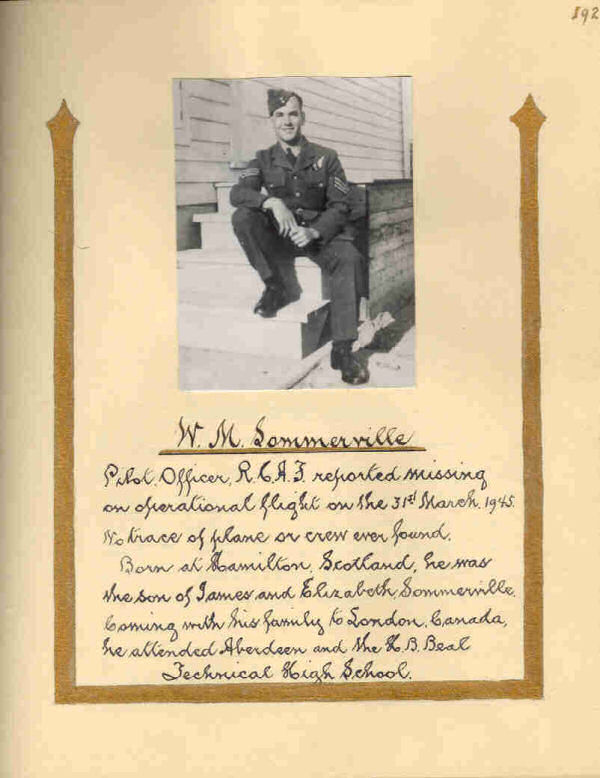 192
W. M. Sommerville
Pilot Officer, R.C.A.F. reported missing
on operational flight on the 31st March, 1945.
No trace of plane or crew ever found.
Born at Hamilton, Scotland, he was
the son of James and Elizabeth Sommerville.
Coming with his family to London, Canada,
he attended Aberdeen and the H. B. Beal
Technical High School.